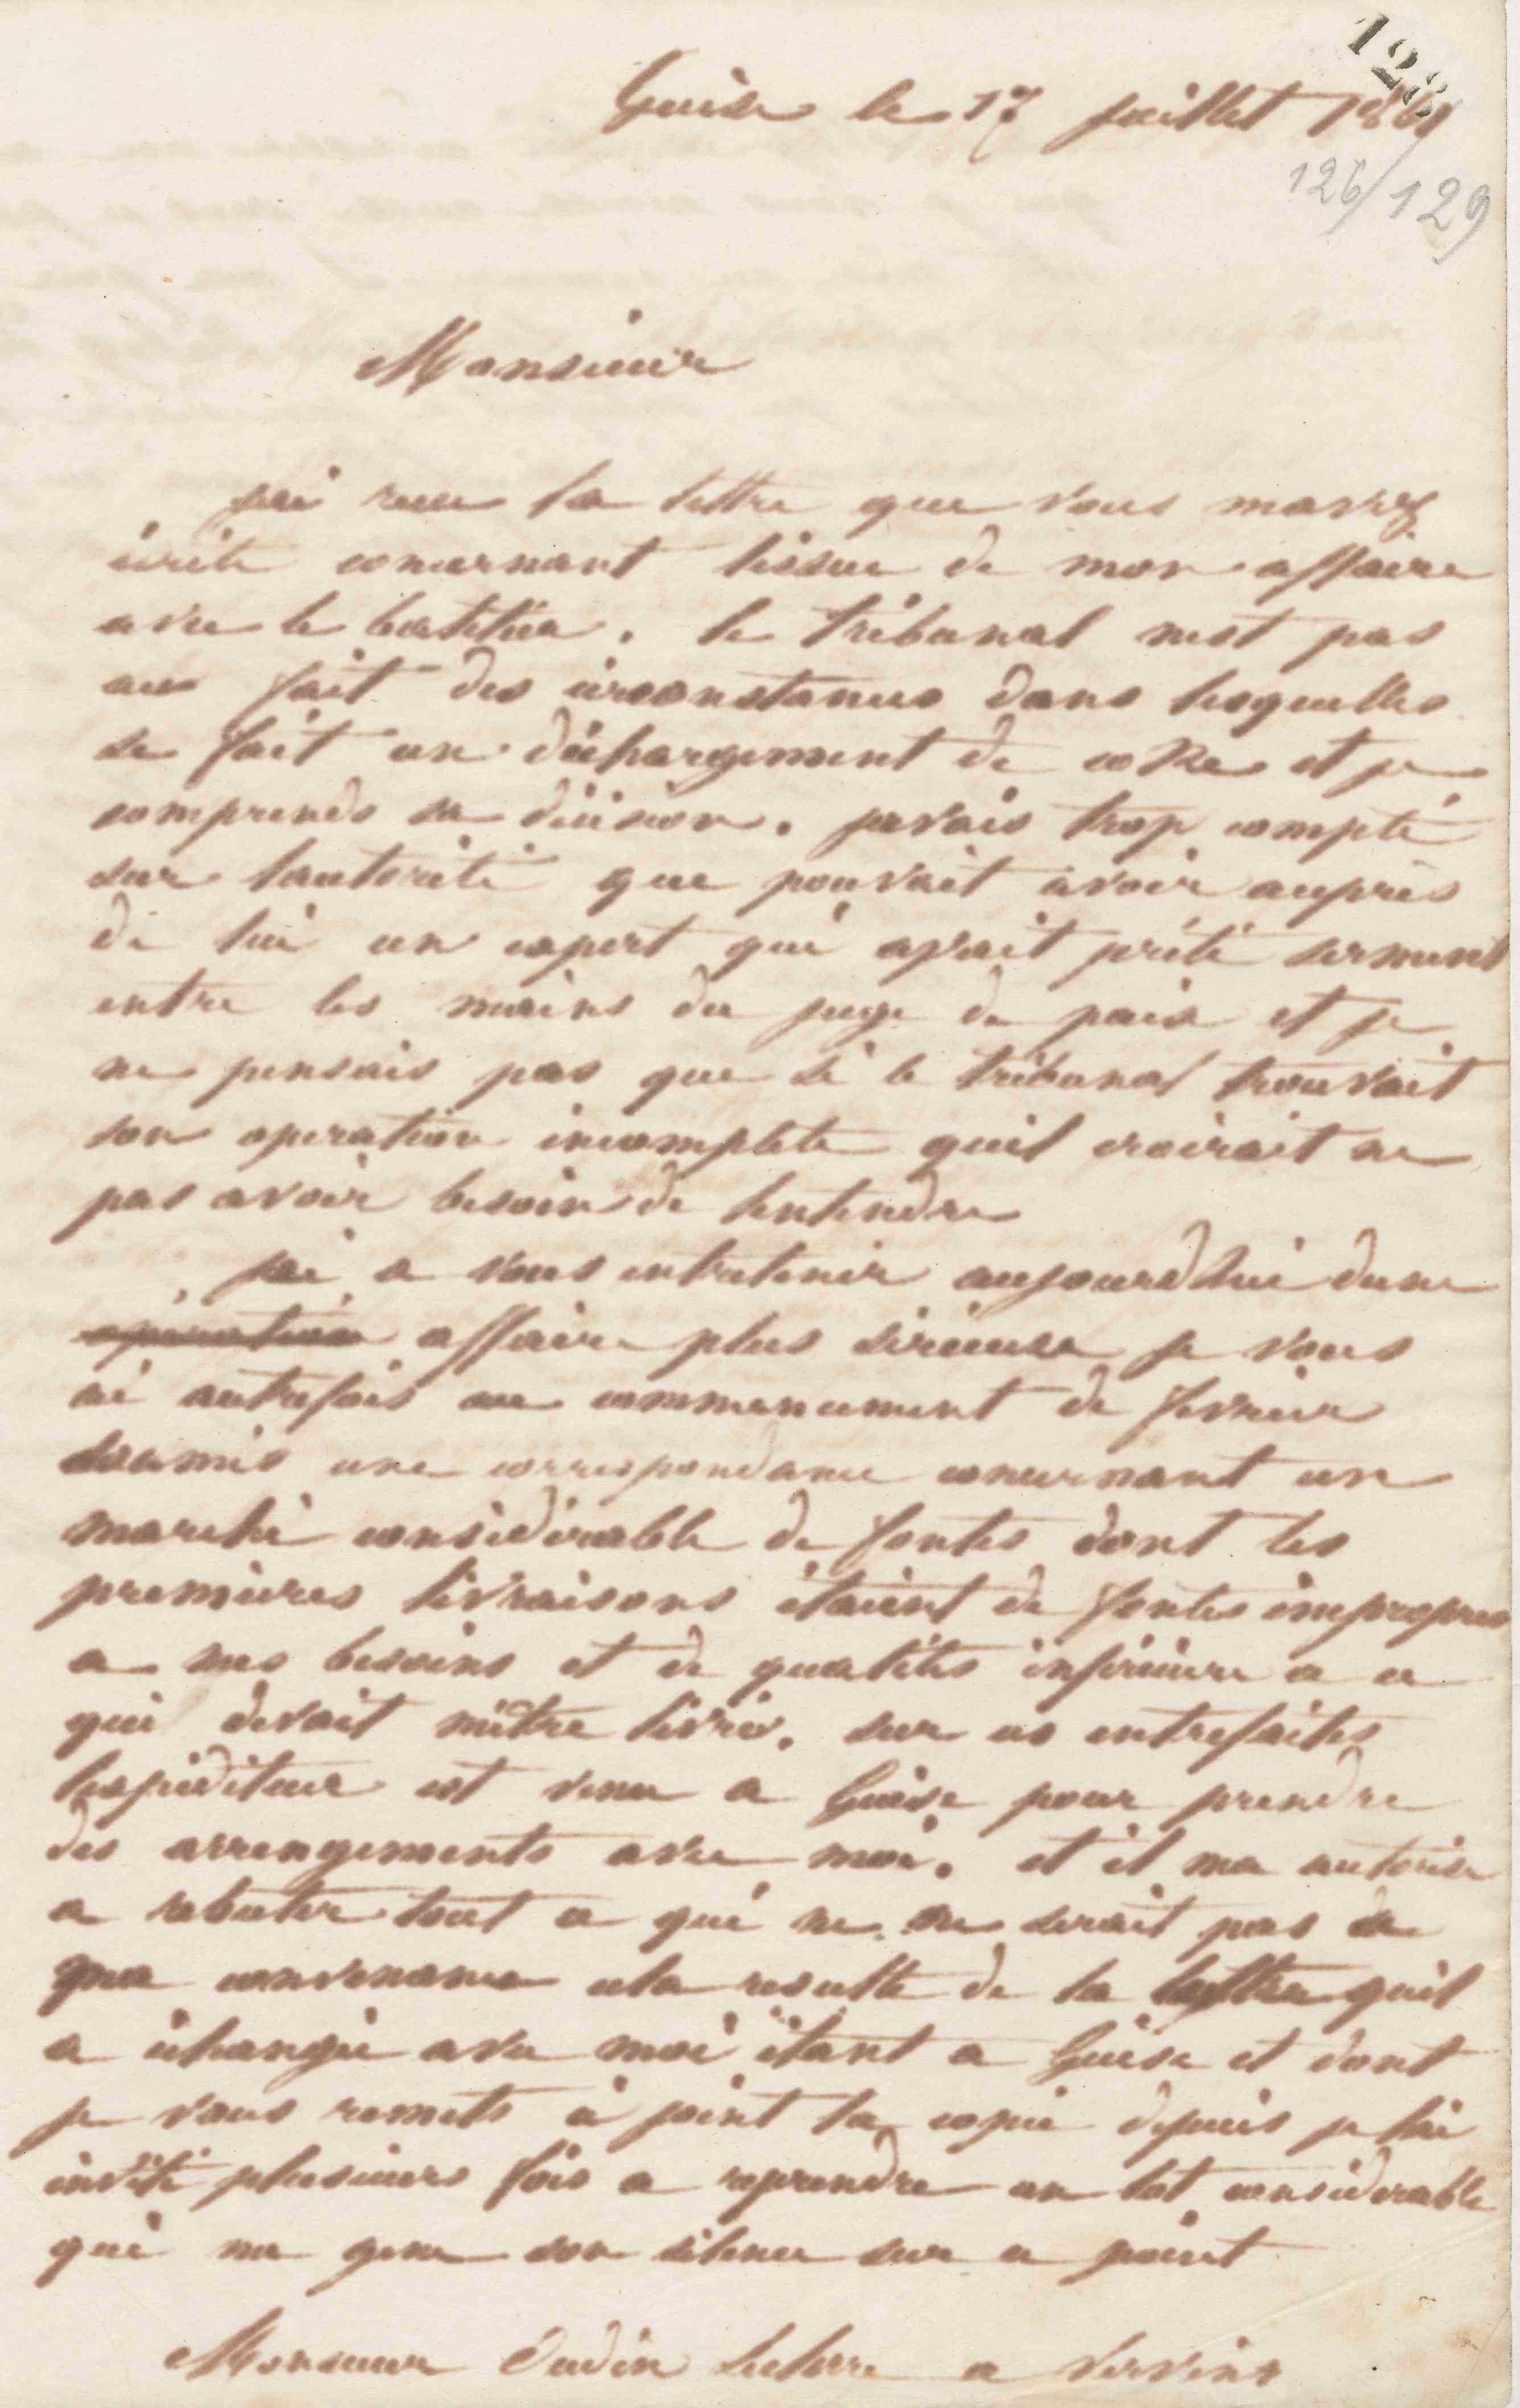 128
Guise le 17 juillet 1861
126/129
Monsieur
jai recu la lettre que vous mavez
écrite concernant lissue de mon affaire
avec le batelier. le tribunal nest pas
au fait des circonstances dans lesquelles
se fait un déchargement de coke et je
comprends sa décision. javais trop compté
sur lautorité que pouvait avoir auprès
de lui un expert qui avait prêté serment
entre les mains du juge de paix et je
ne pensais pas que si le tribunal trouvait
son operation incomplete quil croirait ne
pas avoir besoin de lentendre
jai a vous entretenir aujourdhui dune
opération affaire plus sérieuse je vous
ai autrefois au commencement de fevrier
soumis une correspondance concernant un
marché considérable de fontes dont les
premières livraisons étaient de fontes impropres
a mes besoins et de qualités inférieure a ce
qui devait mêtre livré. sur ces entrefaites
lexpéditeur est venu a Guise pour prendre
des arrengements avec moi. et il ma autorisé
a rebuter tout ce qui ne me serait pas de
convenance cela resulte de la lettre quil
a échangée avec moi étant a Guise et dont
je vous remets ci joint la copie depuis je lai
invité plusieurs fois a reprendre un lot considerable
qui me gene son silence sur ce point
Monsieur Oudin Leclerc a Vervins